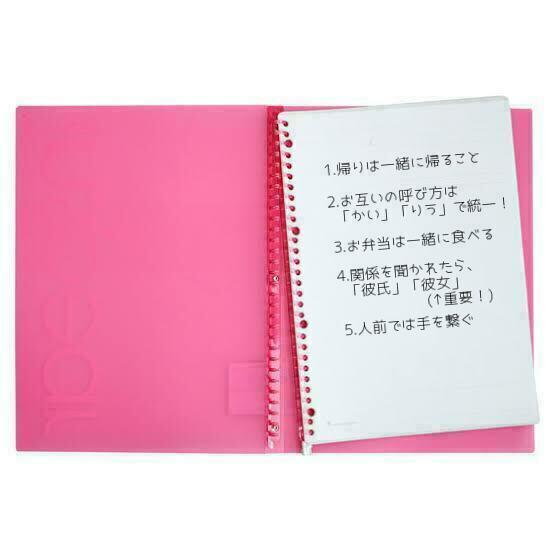 1.帰りは一緒に帰ること
2.お互いの呼び方は
「かい」「りう」で統一！
3.お弁当は一緒に食べる
4.関係を聞かれたら、
「彼氏」「彼女」
(↑重要！)
5.人前では手を繋ぐ